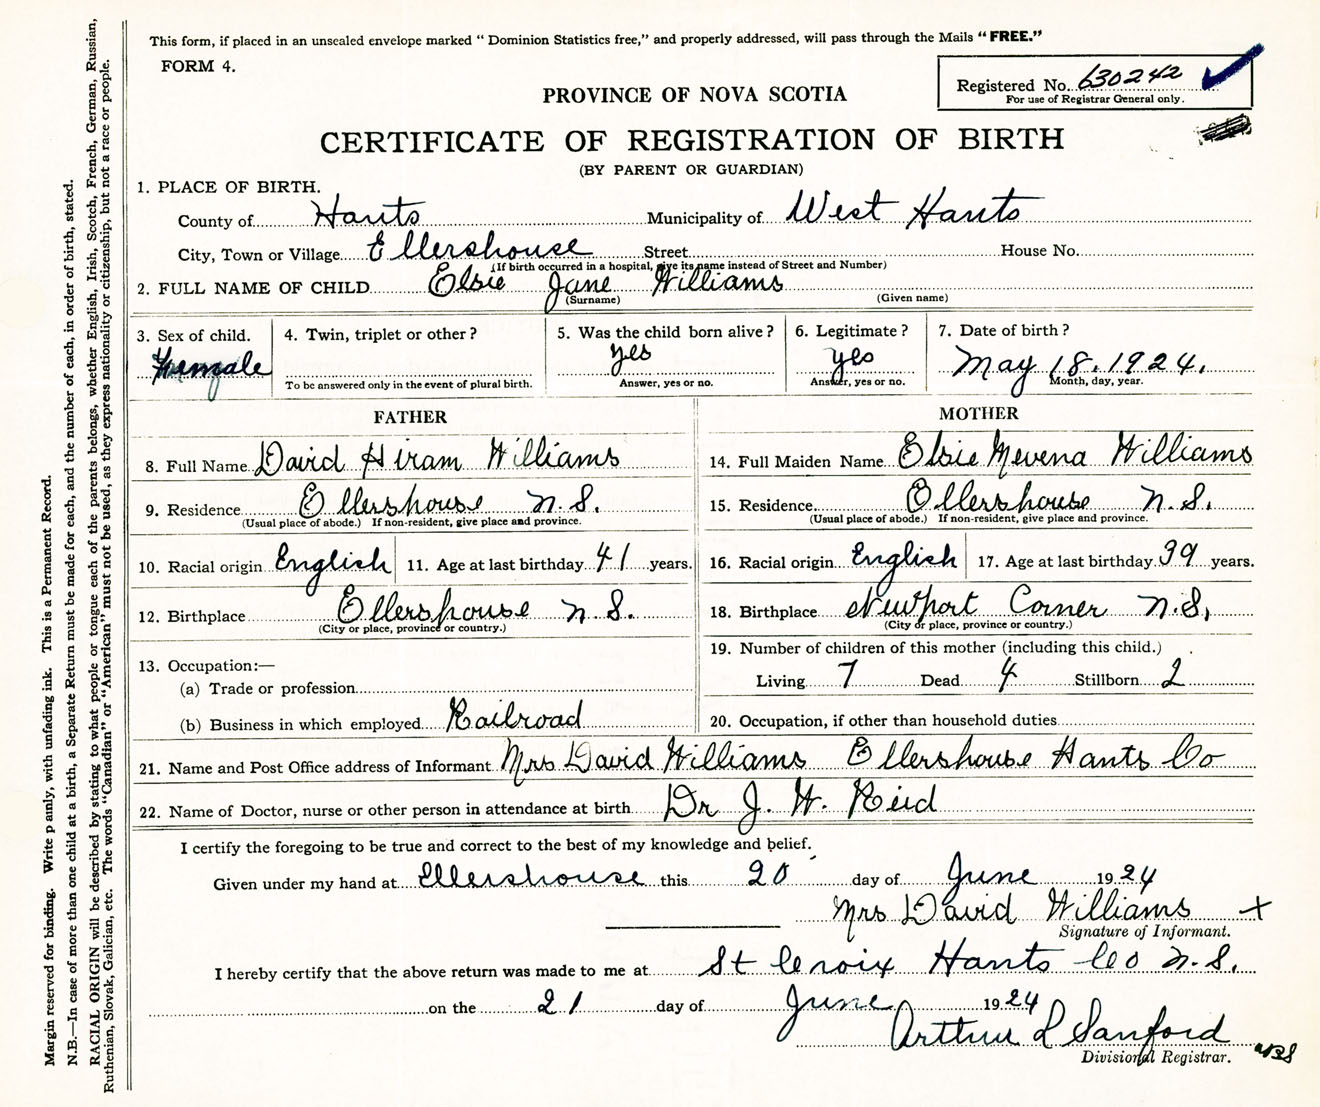 This form, if placed in an unsealed envelope marked “ Dominion Statistics free,” and properly addressed, will pass through the Mails “ FREE.”
FORM 4.
Registered No. 630242
For use of Registrar General only.
PROVINCE OF NOVA SCOTIA
CERTIFICATE OF REGISTRATION OF BIRTH
(BY PARENT OR GUARDIAN)
1. PLACE OF BIRTH.
County of Hants Municipality of West Hants
City, Town or Village Ellershouse Street House No.
(If birth occurred in a hospital, give its name instead of Street and Number)
2. FULL NAME OF CHILD Elsie Jane Williams
(Surname) (Given name)
3. Sex of child. Female
4. Twin, triplet or other ?
To be answered only in the event of plural birth.
5. Was the child born alive ? yes
Answer, yes or no.
6. Legitimate ? yes
Answer, yes or no.
7. Date of birth ? May 18. 1924.
Month, day, year.
FATHER
8. Full Name David Hiram Williams
9. Residence Ellershouse N.S.
(Usual place of abode.) If non-resident, give place and province.
10. Racial origin English 11. Age at last birthday 41 years.
12. Birthplace Ellershouse N.S.
(City or place, province or country.)
13. Occupation:—
(a) Trade or profession
(b) Business in which employed Railroad
MOTHER
14. Full Maiden Name Elsie Mevena Williams
15. Residence Ellershouse N.S.
(Usual place of abode.) If non-resident, give place and province.
16. Racial origin English 17. Age at last birthday 39 years.
18. Birthplace Newport Corner N.S.
(City or place, province or country.)
19. Number of children of this mother (including this child.)
Living 7 Dead 4 Stillborn 2
20. Occupation, if other than household duties
21. Name and Post Office address of Informant Mrs David Williams Ellershouse Hants Co
22. Name of Doctor, nurse or other person in attendance at birth Dr J. W. Reid
I certify the foregoing to be true and correct to the best of my knowledge and belief.
Given under my hand at Ellershouse this 20 day of June 1924
Mrs David Williams +
Signature of Informant.
I hereby certify that the above return was made to me at St Croix Hants Co N.S.
on the 21 day of June 1924
Arthur L Sanford
Divisional Registrar.
Margin reserved for binding. Write p anly, with unfading ink. This is a Permanent Record.
N.B.—In case of more than one child at a birth, a Separate Return must be made for each, and the number of each, in order of birth, stated.
RACIAL ORIGIN will be described by stating to what people or tongue each of the parents belongs, whether English, Irish, Scotch, French, German, Russian,
Ruthenian, Slovak, Galician, etc. The words “Canadian” or “American” must not be used, as they express nationality or citizenship, but not a race or people.